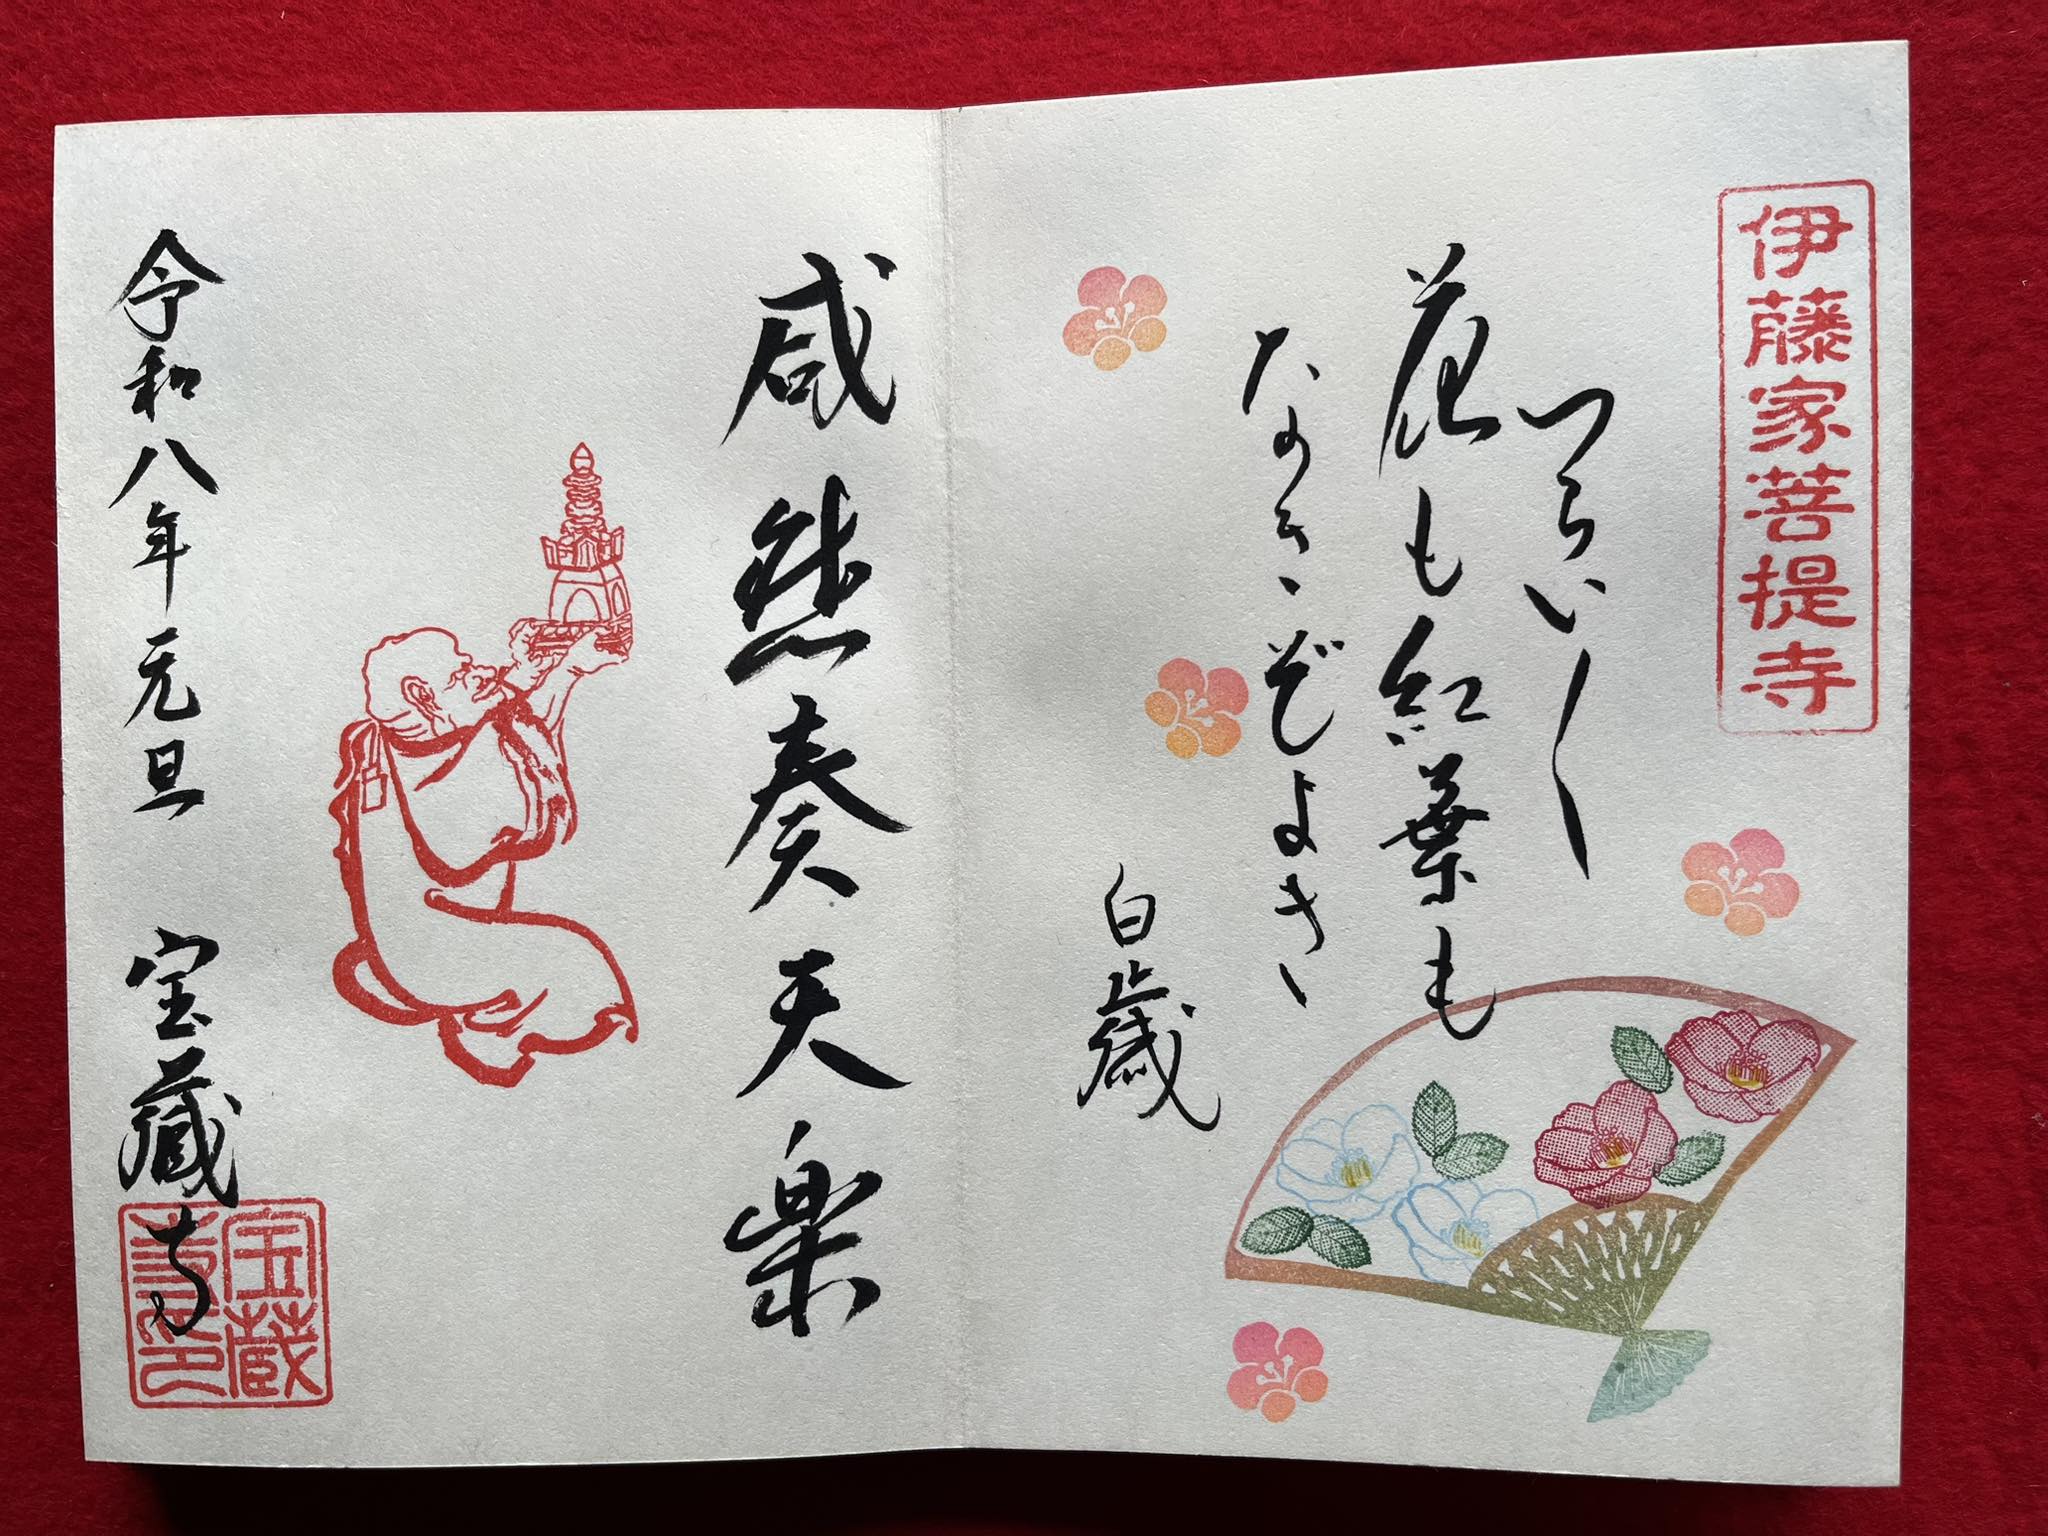 伊藤家菩提寺
つらい〱
花も紅葉も
な ぞよき
白歳
咸然奏天楽
令和八年元旦 宝蔵寺
宝蔵寺印